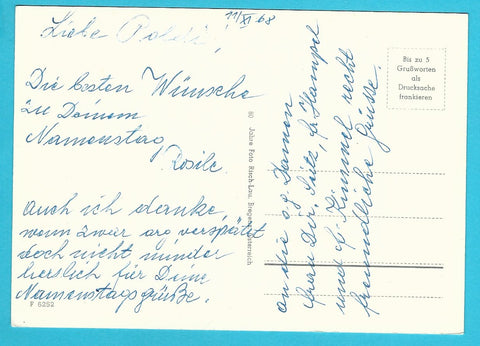 11/XI 68
Liebe Poldi!
Die besten Wünsche
zu Deinem
Namenstag
Rosile.
Auch ich danke,
wenn zwar arg verspätet
doch nicht minder
herzlich für Deine
Namenstagsgrüße.
F 5252
60 Jahre Foto Risch-Lau, Bregenz, Österreich
Bis zu 5
Grußworten
als
Drucksache
frankieren
an die Damen
Frau Dir. Seitz, fr. Hampel
und Kimmel recht
freundliche Grüße.